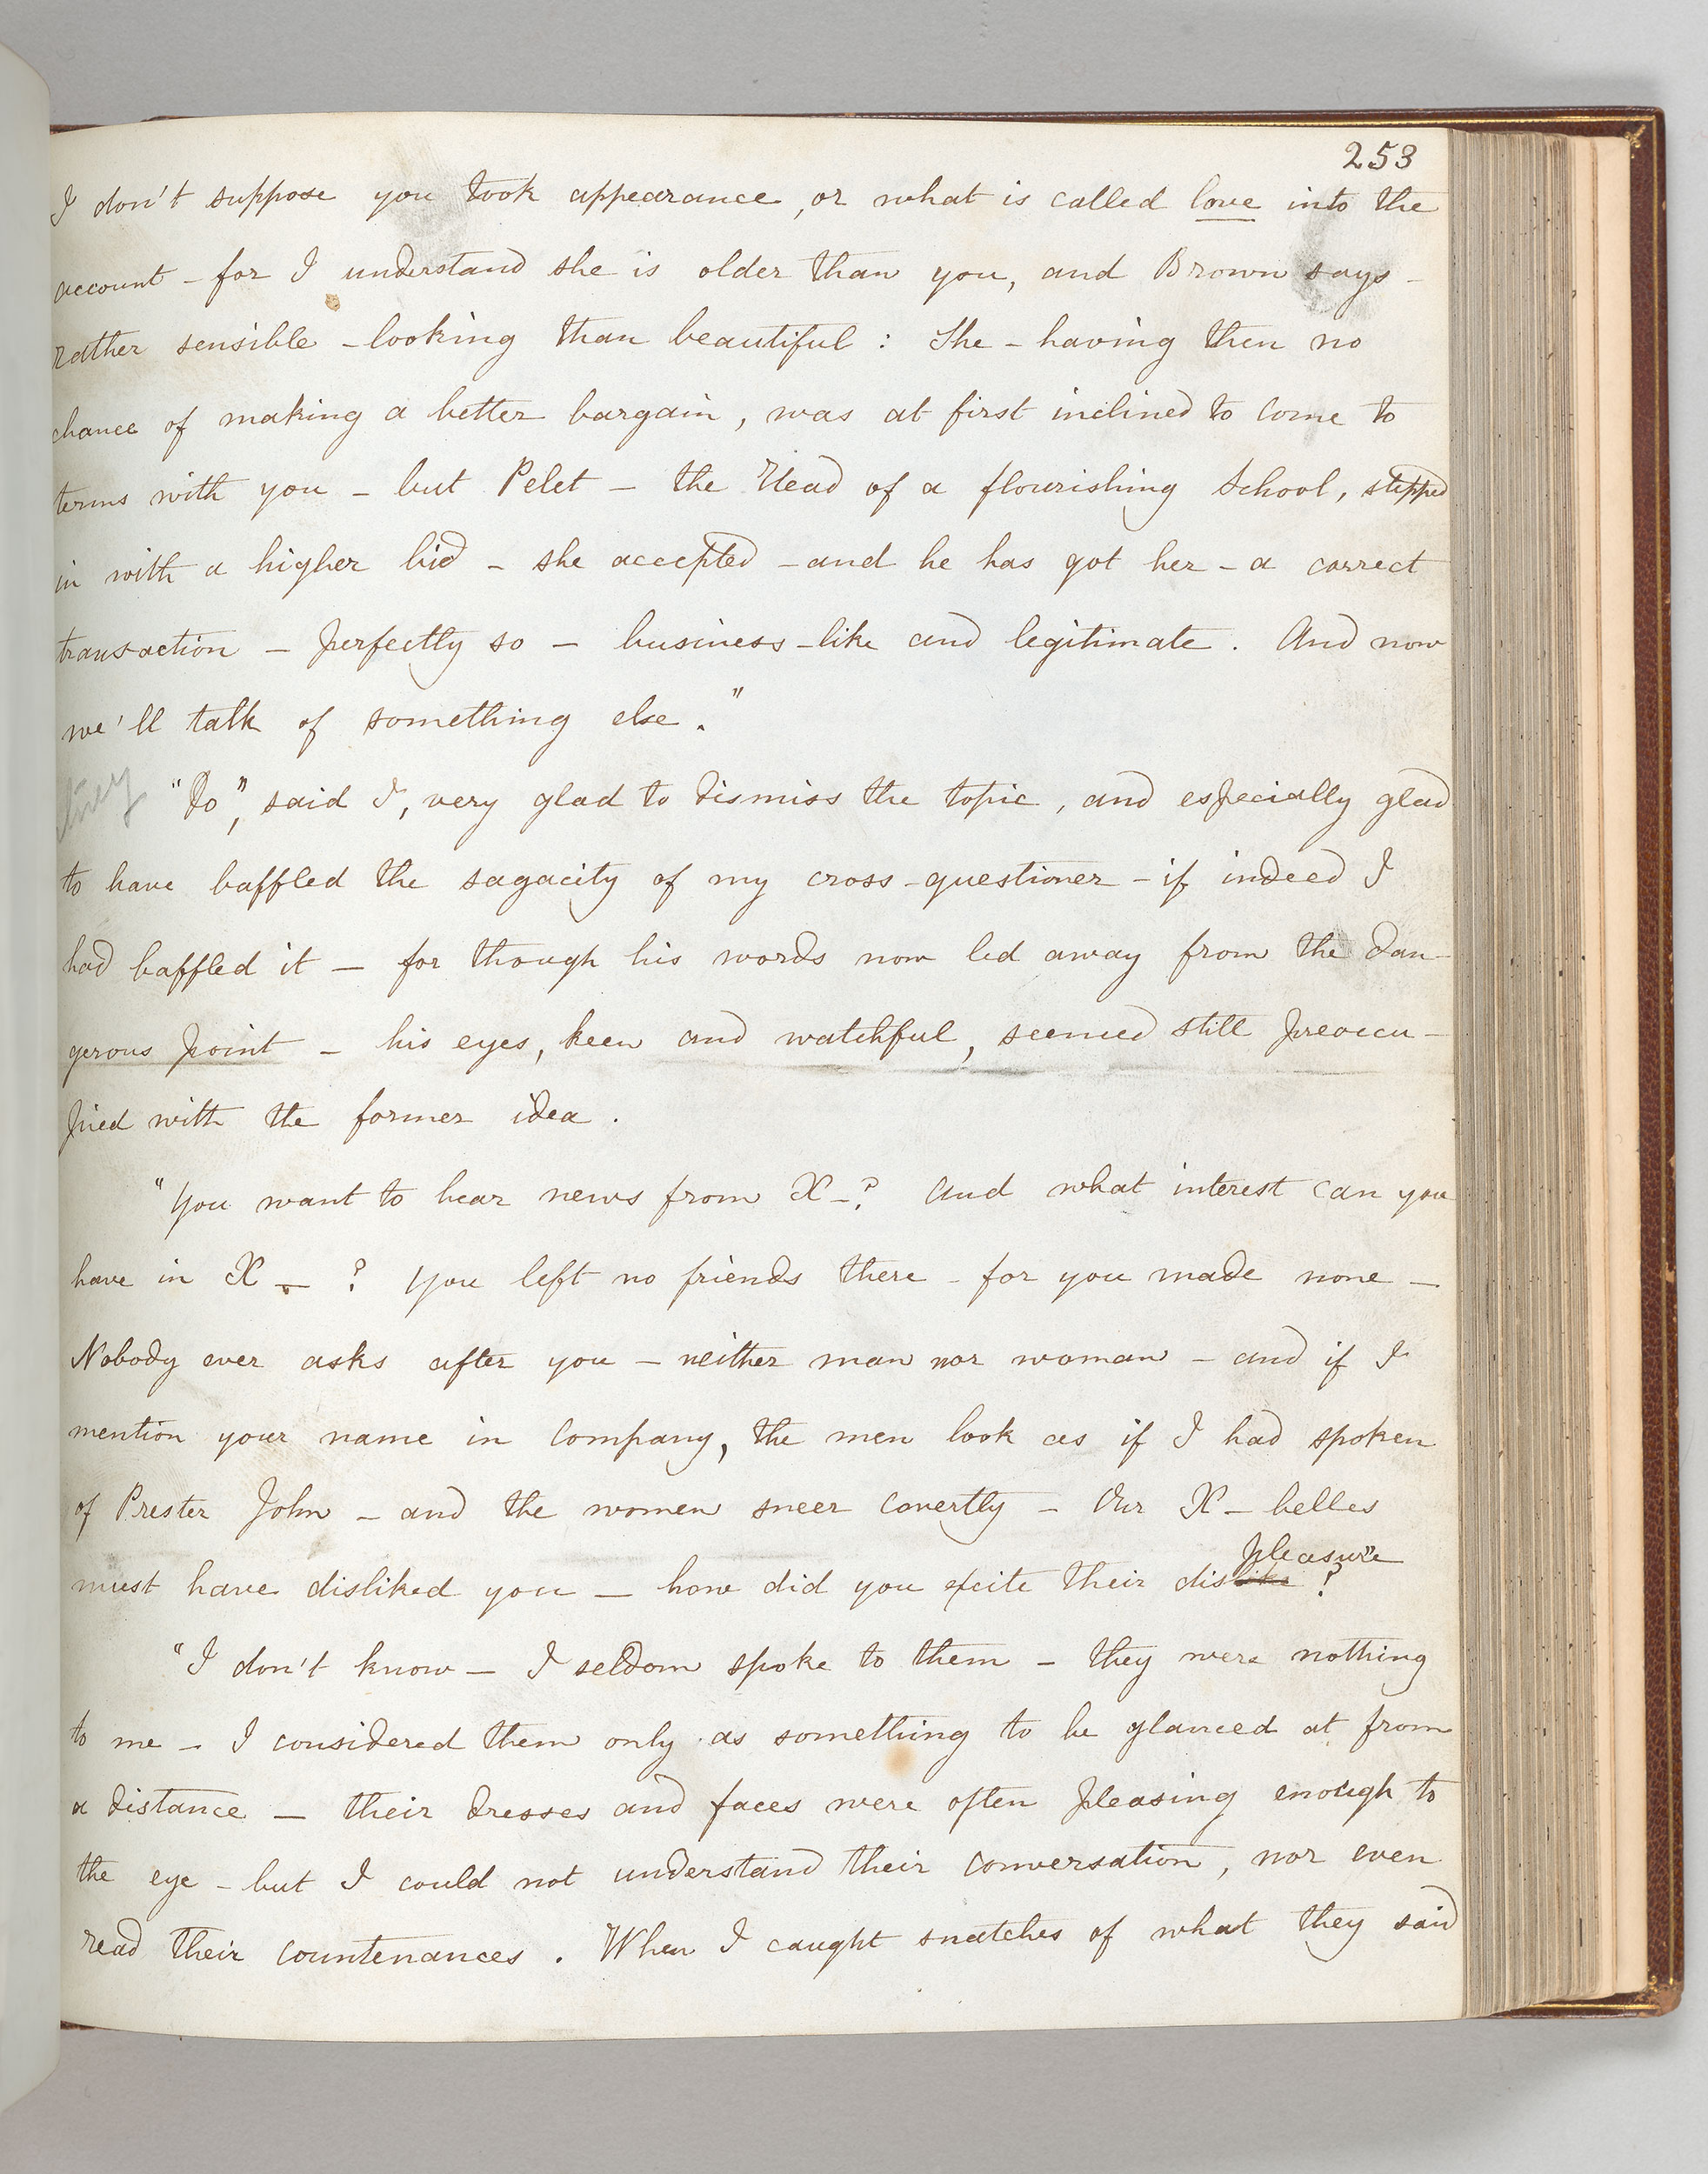 253
I don't suppose you took appearance, or what is called love into the
account - for I understand she is older than you, and Brown says -
rather sensible - looking than beautiful : She - having then no
chance of making a better bargain, was at first inclined to come to
terms with you - but Pelet - the Head of a flourishing School, stepped
in with a higher bid - she accepted - and he has got her - a correct
transaction - perfectly so - business-like and legitimate. And now
we'll talk of something else."
"Do", said I, very glad to dismiss the topic, and especially glad
to have baffled the sagacity of my cross-questioner - if indeed I
had baffled it - for though his words now led away from the dan-
gerous point - his eyes, keen and watchful, seemed still preoccu-
pied with the former idea.
"You want to hear news from X-? And what interest can you
have in X - ? You left no friends there - for you made none -
Nobody ever asks after you - neither man nor woman - and if I
mention your name in company, the men look as if I had spoken
of Prester John - and the women sneer covertly - Our X- belles
must have disliked you - how did you excite their dislike pleasure ?"
"I don't know - I seldom spoke to them - they were nothing
to me - I considered them only as something to be glanced at from
a distance - their dresses and faces were often pleasing enough to
the eye - but I could not understand their conversation, nor even
read their countenances. When I caught snatches of what they said